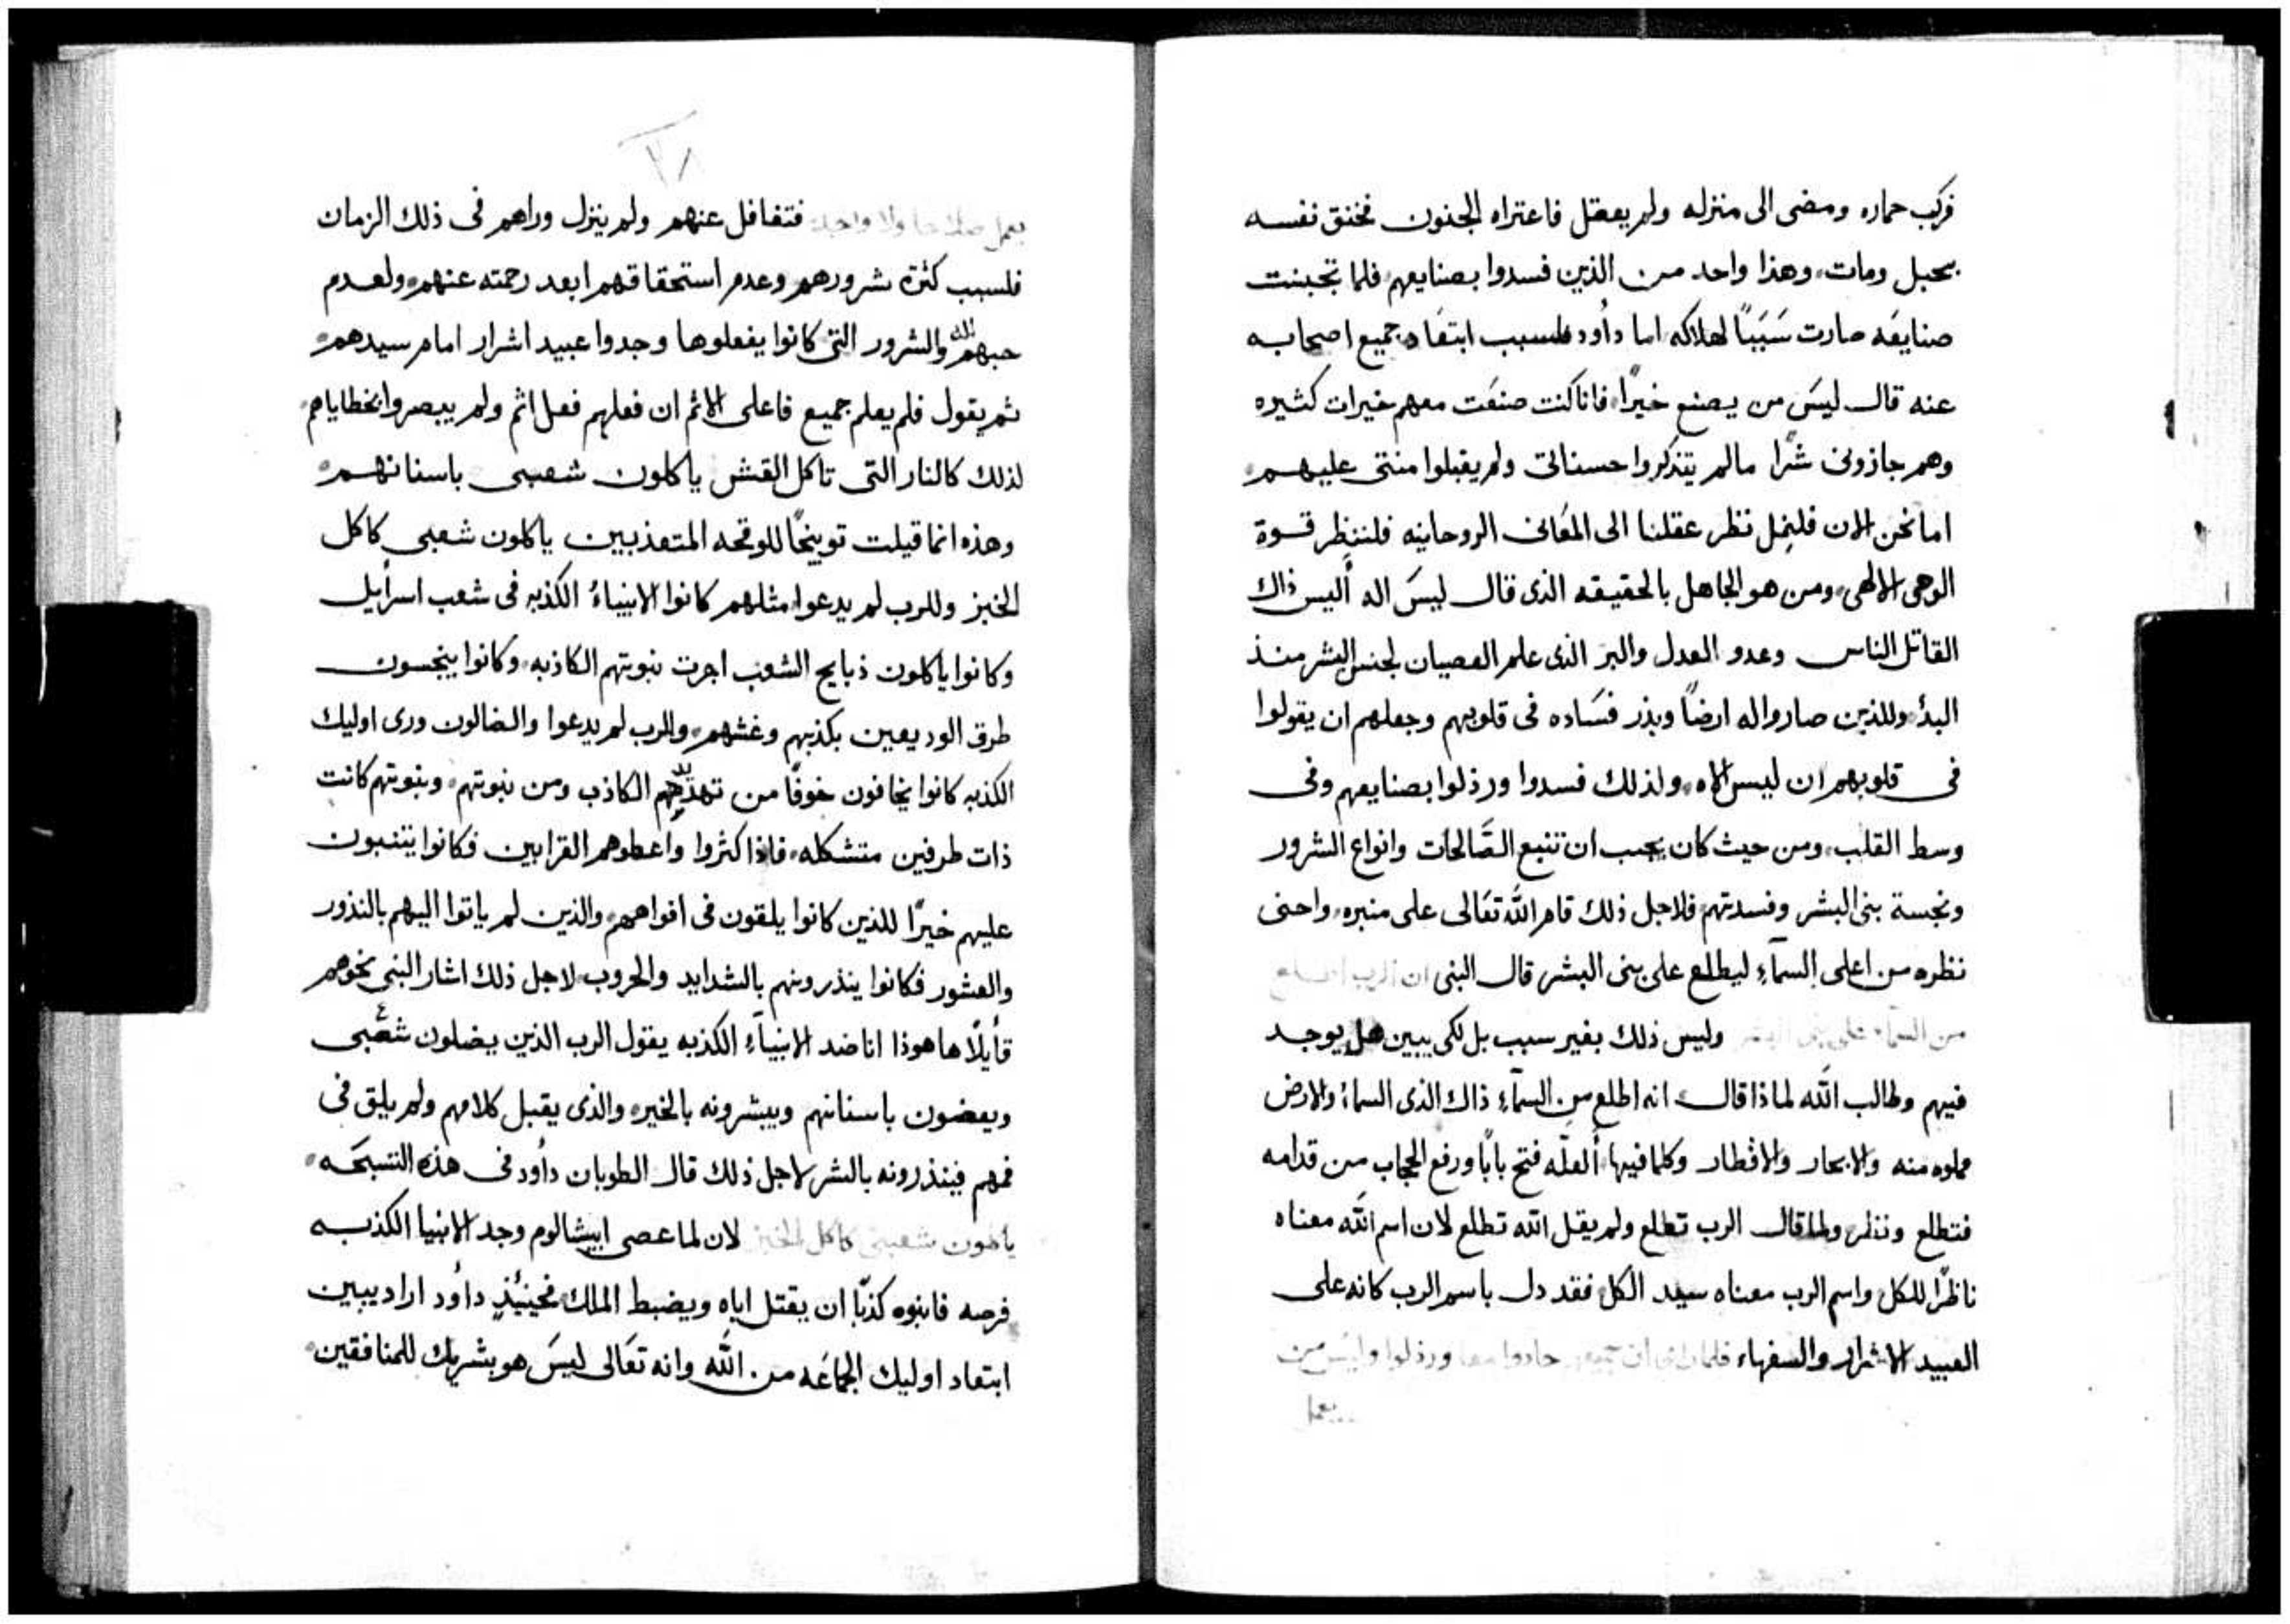 فركب حماره ومضى الى منزله ولم يعقل فاعتراه الجنون فخنق نفسه
بحبل ومات، وهذا واحد من الذين فسدوا بصنايعهم فلما تجبنت
صنايعَه صارت سَبَبًا لهلاكه اما داُود فلسبب ابتعَاد جميع اصحابه
عنه قال ليسَ من يصنع خيرًا، فانا كنت صنعَت معهم خيرات كثيره
وهم جازونى شرًا مالم يتذكروا حسناتى ولم يقبلوا منتى عليهم
اما نحن الان فلنِمل نظر عقلنا الى المعَانى الروحانيه فلننظر قسوة
الوحى الالهى، ومن هو الجاهل بالحقيقه الذى قال ليسَ اله أليس ذاك
القاتل الناس وعدو العدل والبر الذى علم العصيان لجنس البشر منذ
البدأ، وللذين صاروا له ارضًا وبذر فسَاده فى قلوبهم وجعلهم ان يقولوا
فى قلوبهم ان ليس الاه، ولذلك فسدوا ورذلوا بصنايعهم وفى
وسط القلب، ومن حيث كان يجب ان تتبع الصَّالحات وانواع الشرور
ونجسة بنى البشر وفسدتهم فلاجل ذلك قام اللّه تعَالى على منبره، واحنى
نظره من اعلى السمآءِ ليطلع على بنى البشر قال النبى ان الرب اطلع
من السمآء على بنى البشر وليس ذلك بغير سبب بل لكى يبين هل يوجد
فيهم وطالب اللّه لماذا قال انه اطلع من السمآءِ ذاك الذى السماءُ والارض
مملوه منه والابحار والاقطار وكلما فيها، ألعلّه فتح بابًا ورفع الحجاب من قدامه
فتطلع ونظر، ولما قال الرب تطلع ولم يقل اللّه تطلع لان اسم اللّه معناه
ناظرًا للكل واسم الرب معناه سيد الكل، فقد دل باسم الرب كانه على
العبيد الاشرار والسفهاء فلما راى ان جميعهم حادوا معا ورذلوا وليسَ من
يعمل
يعمل صلاحا ولا واحد فتغافل عنهم ولم ينزل وراهم فى ذلك الزمان
فلسبب كثرة شرورهم وعدم استحقاقهم ابعد رحمته عنهم، ولعدم
حبهم اللّه والشرور التى كانوا يفعلوها وجدوا عبيد اشرار امام سيدهم،
ثم يقول فلم يعلم جميع فاعلى الاثم ان فعلهم فعل اثم ولم يبصروا بخطاياهم،
لذلك كالنار التى تاكل القش ياكلون شعبى باسنانهم،
وهذه انما قيلت توبيخًا للوقحه المتعذبين ياكلون شعبى كاكل
الخبز وللرب لم يدعوا، مثلهم كانوا الانبياءُ الكذبه فى شعب اسراُيل
وكانوا ياكلون ذبايح الشعب اجرت نبوتهم الكاذبه، وكانوا ينجسون
طرق الوديعين بكذبهم وغشهم، والرب لم يدعوا والضالون ورى اوليك
الكذبه كانوا يخافون خوفًا من تهديدهم الكاذب ومن نبوتهم، ونبوتهم كانت
ذات طرفين متشكله، فاذا كثروا واعطوهم القرابين فكانوا يتنبون
عليهم خيرًا للذين كانوا يلقون فى افواههم، والذين لم ياتوا اليهم بالنذور
والعشور فكانوا ينذرونهم بالشدايد والحروب، لاجل ذلك اشار النبى نحوهم
قاُيلًا ها هوذا انا ضد الانبيآءِ الكذبه يقول الرب الذين يضلون شعَبى
ويعضون باسنانهم ويبشرونه بالخير، والذى يقبل كلامهم ولم يلق فى
فمهم فينذرونه بالشر لاجل ذلك قال الطوبان داُود فى هذه التسبحَه،
ياكلون شعبى كاكل الخبز لان لما عصى ابيشالوم وجد الانبيا الكذبه
فرصه فانبوه كذبًا ان يقتل اباه ويضبط الملك، فحينُيذٍ داُود اراد يبين
ابتعاد اوليك الجماعَه من اللّه وانه تعَالى ليسَ هو بشريك للمنافقين،